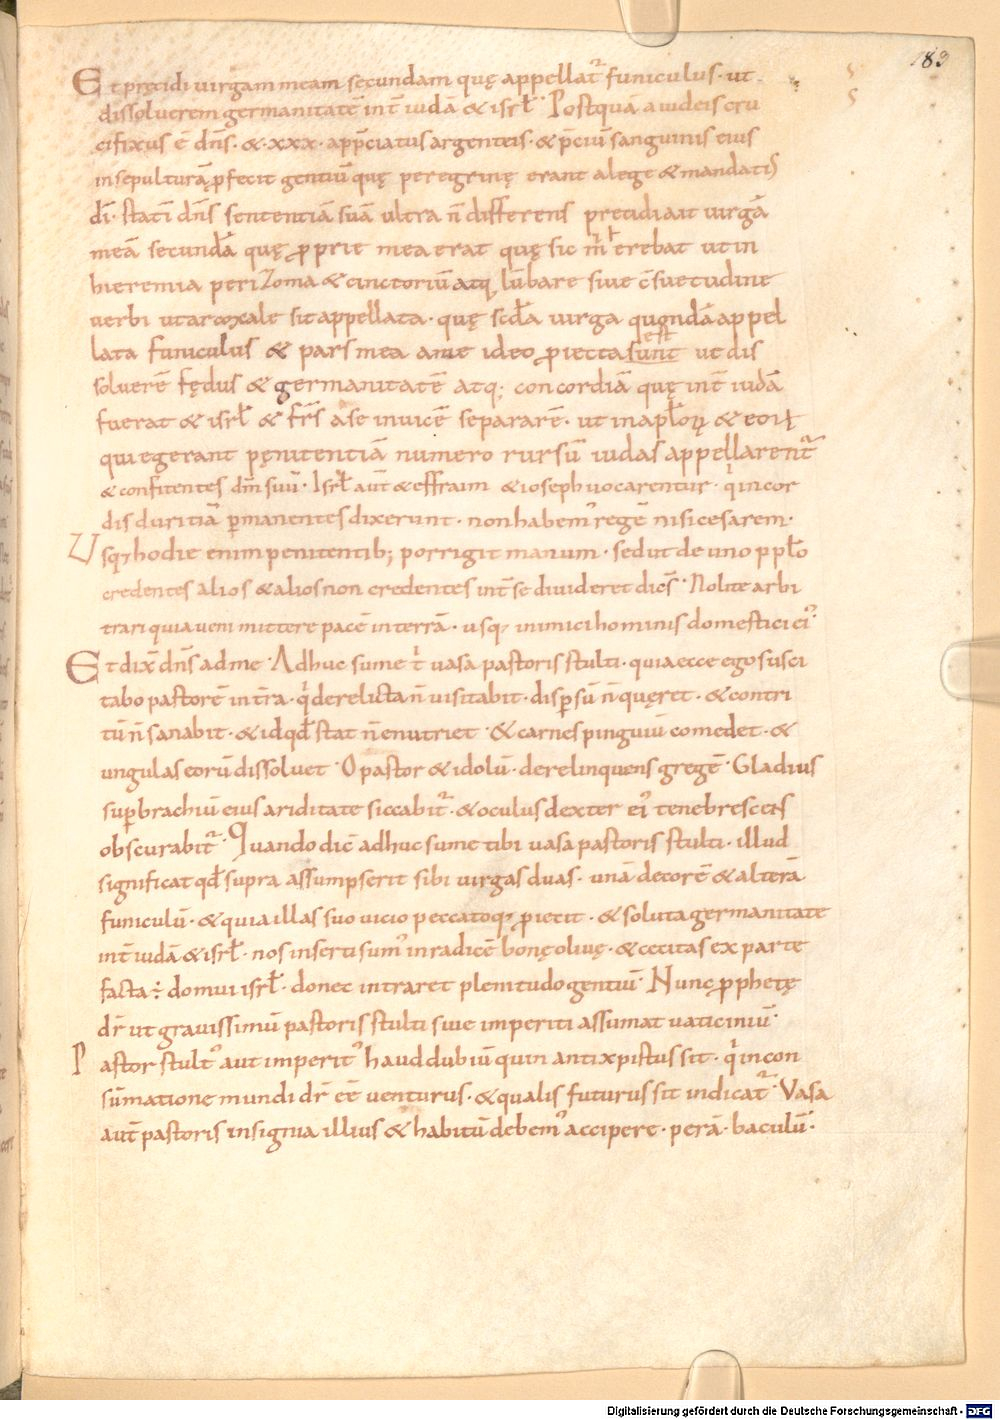 183
Et precidi virgam meam secundam quę appellat̃ funiculus· ut
dissoluerem germanitatē int̄ iudā & isrł· Postquā a iudeis cru
cifixus ē dñs· &·xxx· app̄ciatus argenteis· & p̄ciū sanguinis eius
in sepulturā ꝓfecit gentiū quę peregrinę erant a lege & mandatis
dī· statī dñs sententiā suā ultra ñ differens precidi ait uirgā
meā secundā quę ꝓprie mea erat quę sic mͥ erebat ut in
hieremia perizoma & cinctoriū atq; lūbare siue c̄suetudine
uerbi utarcoxale sit appellata· quę scđa uirga quondā appel
lata funiculus & pars mea a me ideo ꝓiecta sunt est ut dis
soluerē fędus & germanitatē atq; concordiā quę int̄ iudā
fuerat & isrł & fr̄s a se inuicē separarē· ut in apłorꝝ & eorꝝ
qui egerant pęnitentiā numero rursū iudas appellarent̃
& confitentes dn̄m suū· Isrł aut̄ & effraim & ioseph uocarentur· qͥ in cor
dis duritiā ꝑmanentes dixerunt· non habem᾽ regē nisi cesarem·
Usq; hodie enim penitentib; porrigit manum· sed ut de uno ppło
credentes alios & alios non credentes int̄ se diuideret dic̄s· Nolite arbi
trari quia ueni mittere pacē in terrā· usq; inimici hominis domestici ei᾽·
Et dix̄ dñs ad me· Adhuc sume tͥ uasa pastoris stulti· quia ecce ego susci
tabo pastorē in t̄ra· qͥ derelicta ñ uisitabit· disꝑsū ñ quęret· & contri
tū ñ sanabit· & id qđ stat ñ enutriet· & carnes pinguiū comedet· &
ungulas eorū dissoluet· O pastor & idolū· derelinquens gregē· Gladius
suꝑ brachiū eius ariditate siccabit̃· & oculus dexter ei᾽ tenebrescens
obscurabit̃· Quando dic̄ adhuc sume tibi uasa pastoris stulti· illud
significat qđ supra assumpserit sibi uirgas duas· unā decorē & alterā
funiculū· & quia illas suo uicio peccatoq; ꝓiecit· & soluta germanitate
int̄ iudā & isrł· nos inserti sum᾽ in radicē bonę oliuę· & cecitas ex parte
facta ÷ domui isrł· donec intraret plenitudo gentiū· Nunc ꝓphetę
dr̄ ut grauissimū pastoris stulti siue imperiti assumat uaticiniū·
Pastor stult᾽ aut imperit᾽ haud dubiū quin antixpistus sit· qͥ in con
sūmatione mundi dr̄ eē uenturus· & qualis futurus sit indicat̃· Vasa
aut̄ pastoris insignia illius & habitū debem᾽ accipere· perā· baculū·
Digitalisierung gefördert durch die Deutsche Forschungsgemeinschaft - DFG